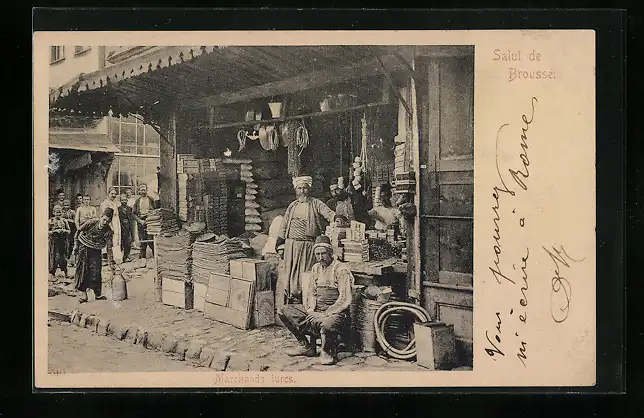 Salut de
Brousse.
Vous pouvez
m'écrire à Rome
Marchands turcs.